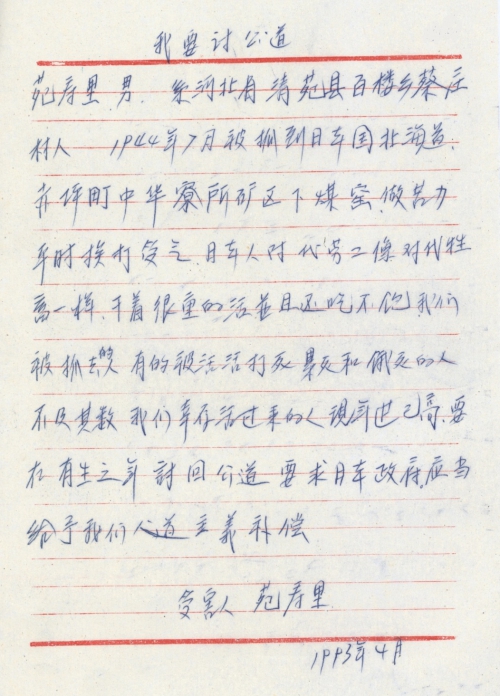 我要讨公道
苑寿里 男. 系河北省清苑县百楼乡蔡庄
村人 1944年7月被抓到日本国北海道.
赤坪町中华寮所矿区下煤窑.做苦力
平时挨打受气.日本人对代劳工像对代牲
畜一样.干着很重的活並且还吃不饱我们
被抓去的 有的被活活打死 累死和饿死的人
不及其数 我们幸存活过来的人现年世已高.要
在有生之年 討回公道 要求日本政府.应当
给予我们人道主義补偿
受害人 苑寿里
1993年4月